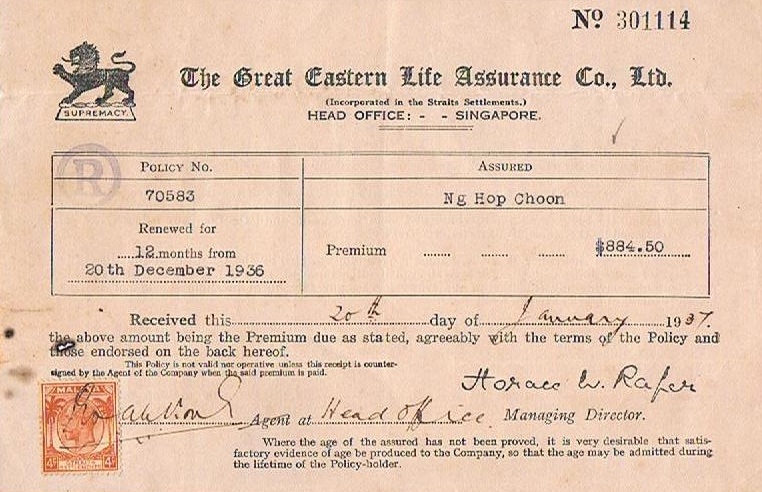 Nº 301114
The Great Eastern Life Assurance Co., Ltd.
SUPREMACY.
(Incorporated in the Straits Settlements.)
HEAD OFFICE: - - SINGAPORE.
R
POLICY NO.
ASSURED
70583
Ng Hop Choon
Renewed for
12 months from
20th December 1936
Premium ........ ........ ........ $884.50
Received this 20th day of January 1937.
the above amount being the Premium due as stated, agreeably with the terms of the Policy and
those endorsed on the back hereof.
This Policy is not valid nor operative unless this receipt is counter-
signed by the Agent of the Company when the said premium is paid.
Horace W. Rafer
MALAYA
4c 4c
Agent at Head office. Managing Director.
Where the age of the assured has not been proved, it is very desirable that satis-
factory evidence of age be produced to the Company, so that the age may be admitted during
the lifetime of the Policy-holder.